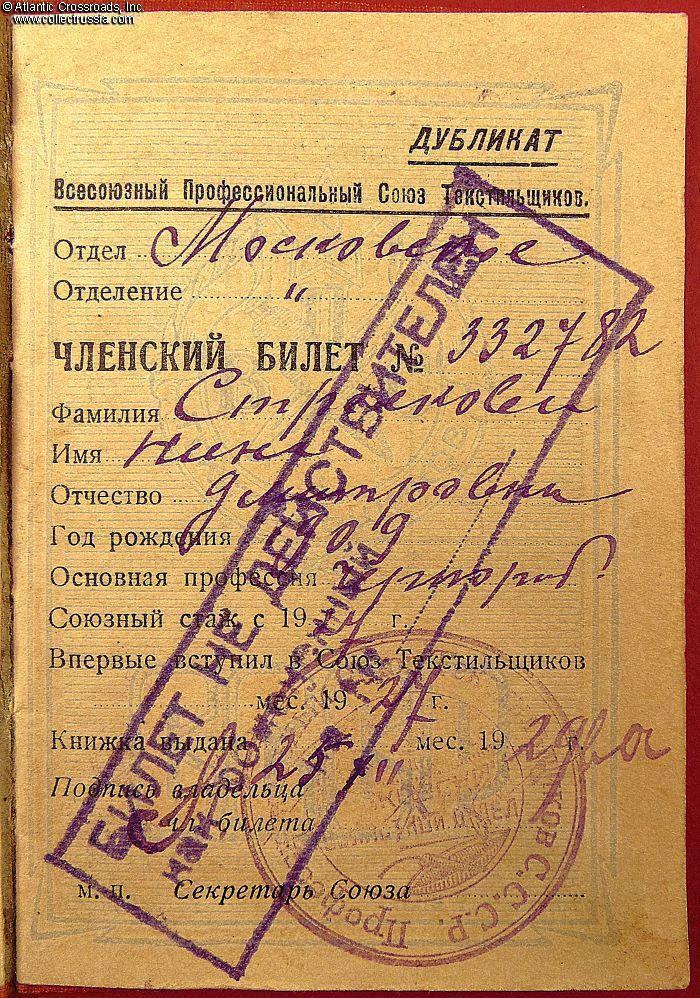 © Atlantic Crossroads, Inc.
www.collectrussia.com
ДУБЛИКАТ
Всесоюзный Профессиональный Союз Текстильщиков.
Отдел Московское
Отделение "
ЧЛЕНСКИЙ БИЛЕТ № 332782
Фамилия
Имя Нина
Отчество Дмитровна
Год рождения 1909
Основная профессия
Союзный стаж с 19 г.
Впервые вступил в Союз Текстильщиков
мес. 1927 г.
Книжка выдана 25 " мес. 1929 г.
Подпись владельца
чл. билета
м. п. Секретарь Союза
БИЛЕТ НЕ ДЕЙСТВИТЕЛЕН
С.С.С.Р.
ОТДЕЛ